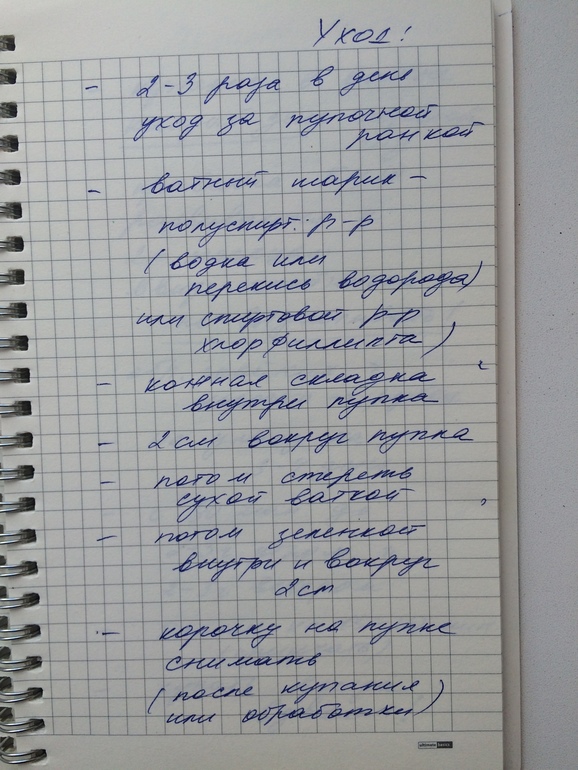 Уход!
- 2-3 раза в день
уход за пупочной
ранкой
- ватный шарик -
полуспирт. р-р
(водка или
перекись водорода)
или спиртовой р-р
хлорфиллипта)
- кожная складка
внутри пупка
- 2 см вокруг пупка
- потом стереть
сухой ваткой
- потом зеленкой
внутри и вокруг
2 см
- корочку на пупке
снимать
(после купания
или обработки)